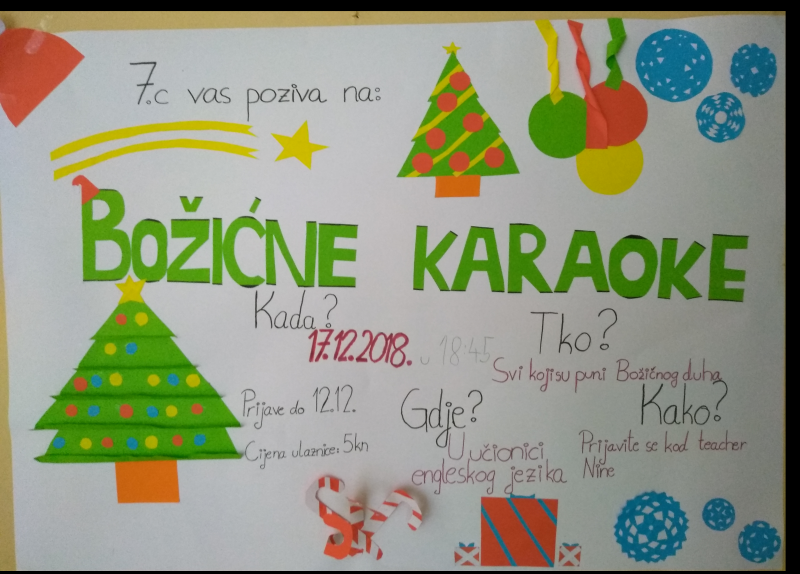 7.c vas poziva na:
BOŽIĆNE KARAOKE
Kada?
17.12.2018. u 18:45
Tko?
Svi koji su puni Božićnog duha
Prijave do 12.12.
Cijena ulaznice: 5kn
Gdje?
U učionici
engleskog jezika
Kako?
Prijavite se kod teacher
Nine